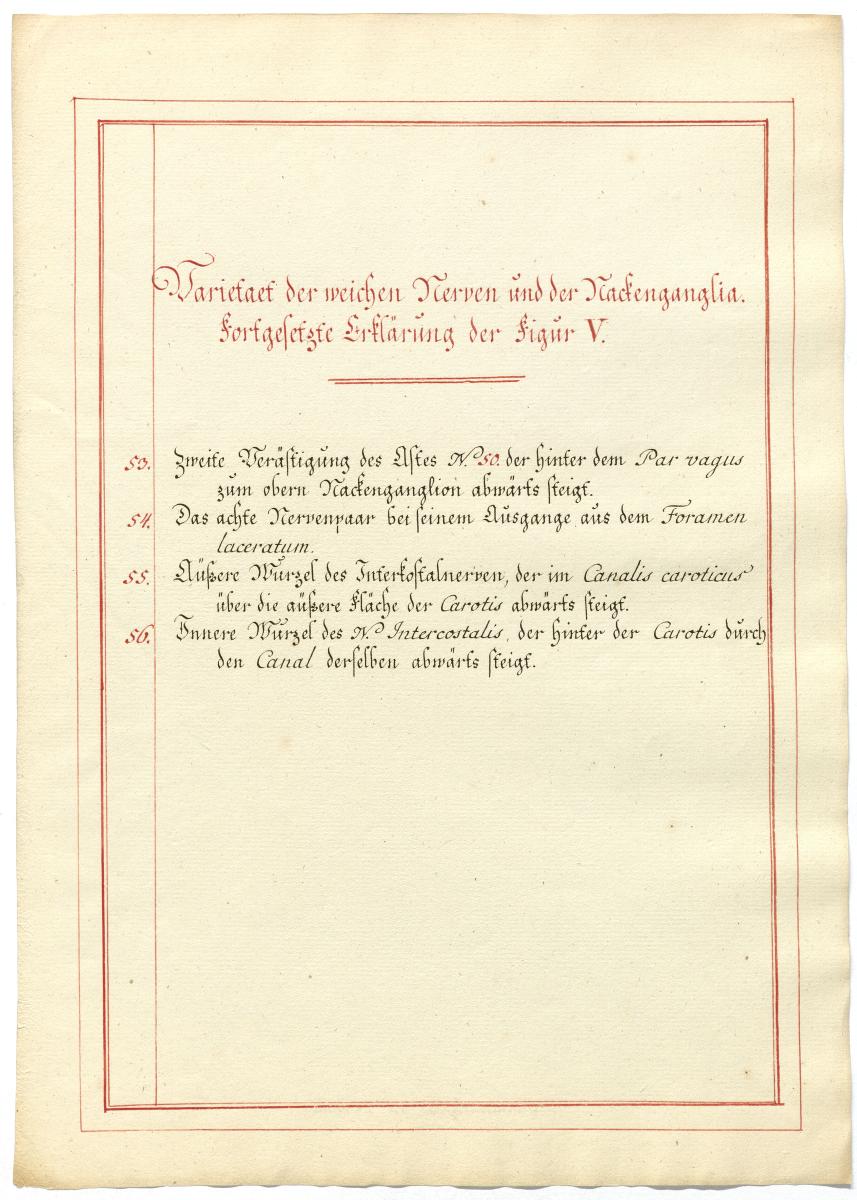 Varietaet der weichen Nerven und der Nackenganglia.
Fortgesetzte Erklärung der Figur V.
53. Zweite Verästigung des Astes N.º 50. der hinter dem Par vagus
zum obern Nackenganglion abwärts steigt.
54. Das achte Nervenpaar bei seinem Ausgange aus dem Foramen
laceratum.
55. Äußere Wurzel des Interkostalnerven, der im Canalis caroticus
über die äußere Fläche der Carotis abwärts steigt.
56. Innere Wurzel des N.º Intercostalis, der hinter der Carotis durch
den Canal derselben abwärts steigt.